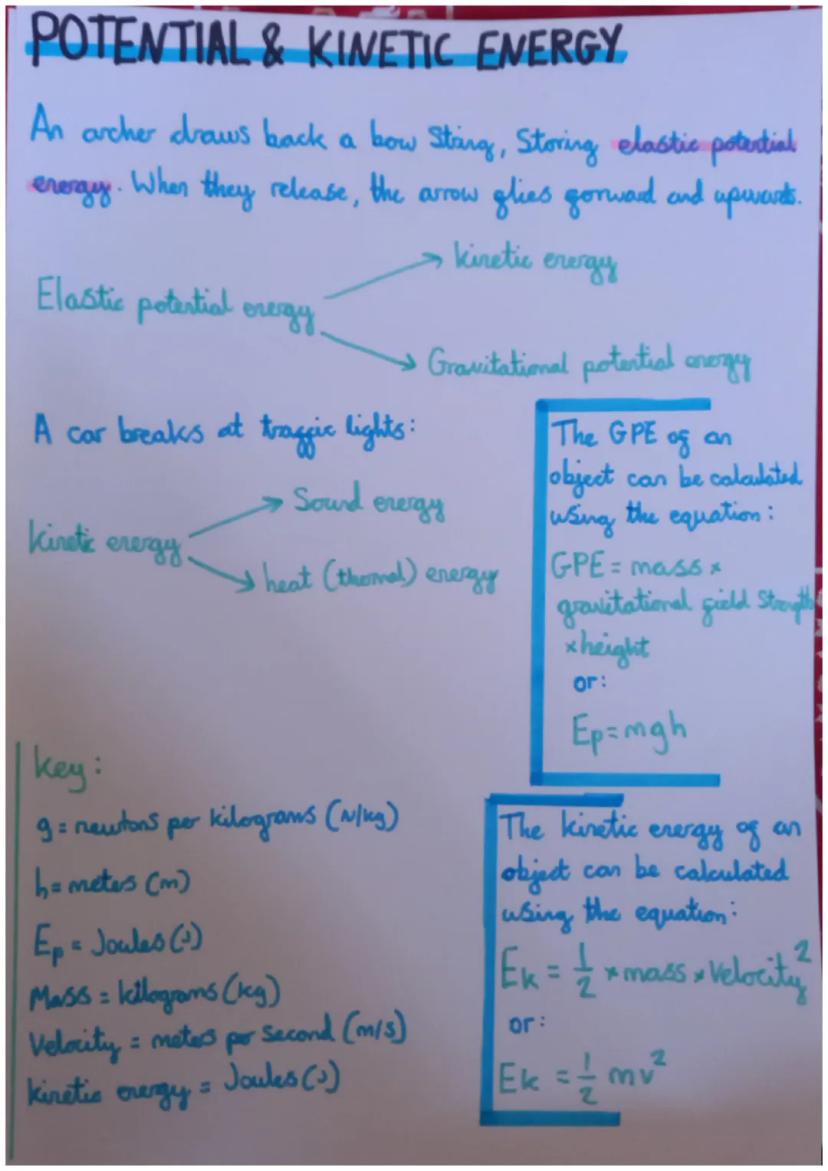 POTENTIAL & KINETIC ENERGY
An archer draws back a bow String, Storing elastic potential
energy. When they release, the arrow flies forward and upwards.
Elastic potential energy
kinetic energy
Gravitational potential energy
A car breaks at traffic lights:
kinetic energy
Sound energy
heat (thermal) energy
The GPE of an
object can be calculated
using the equation:
GPE = mass ×
gravitational field Strength
× height
or:
Ep = mgh
key:
g = newtons per kilograms (N/kg)
h = meters (m)
Ep = Joules (J)
Mass = kilograms (kg)
Velocity = meters per second (m/s)
kinetic energy = Joules (J)
The kinetic energy of an
object can be calculated
using the equation:
Ek = 1/2 × mass × velocity²
or:
Ek = 1/2 mv²